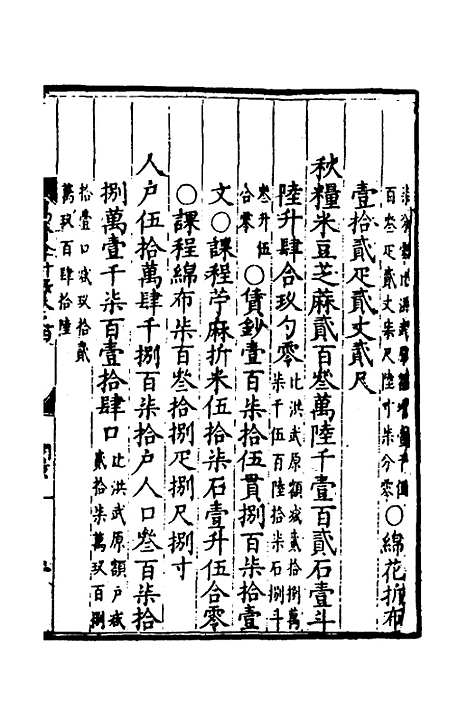 百叁疋貳丈柒尺陸寸柒分零〇綿花折布
壹拾貳疋貳丈貳尺
秋糧米豆芝麻貳百叁萬陸千壹百貳石壹斗
陸升肆合玖勺零比洪武原額減貳拾捌萬柒千伍百陸拾柒石捌斗
叁升伍合零〇賃鈔壹百柒拾伍貫捌百柒拾壹
文〇課程苧麻折米伍拾柒石壹升伍合零
〇課程綿布柒百叁拾捌疋捌尺捌寸
人户伍拾萬肆千捌百柒拾户人口叁百柒拾
捌萬壹千柒百壹拾肆口比洪武原額户減貳拾柒萬玖百捌
拾壹口減玖拾貳萬玖百肆拾陸